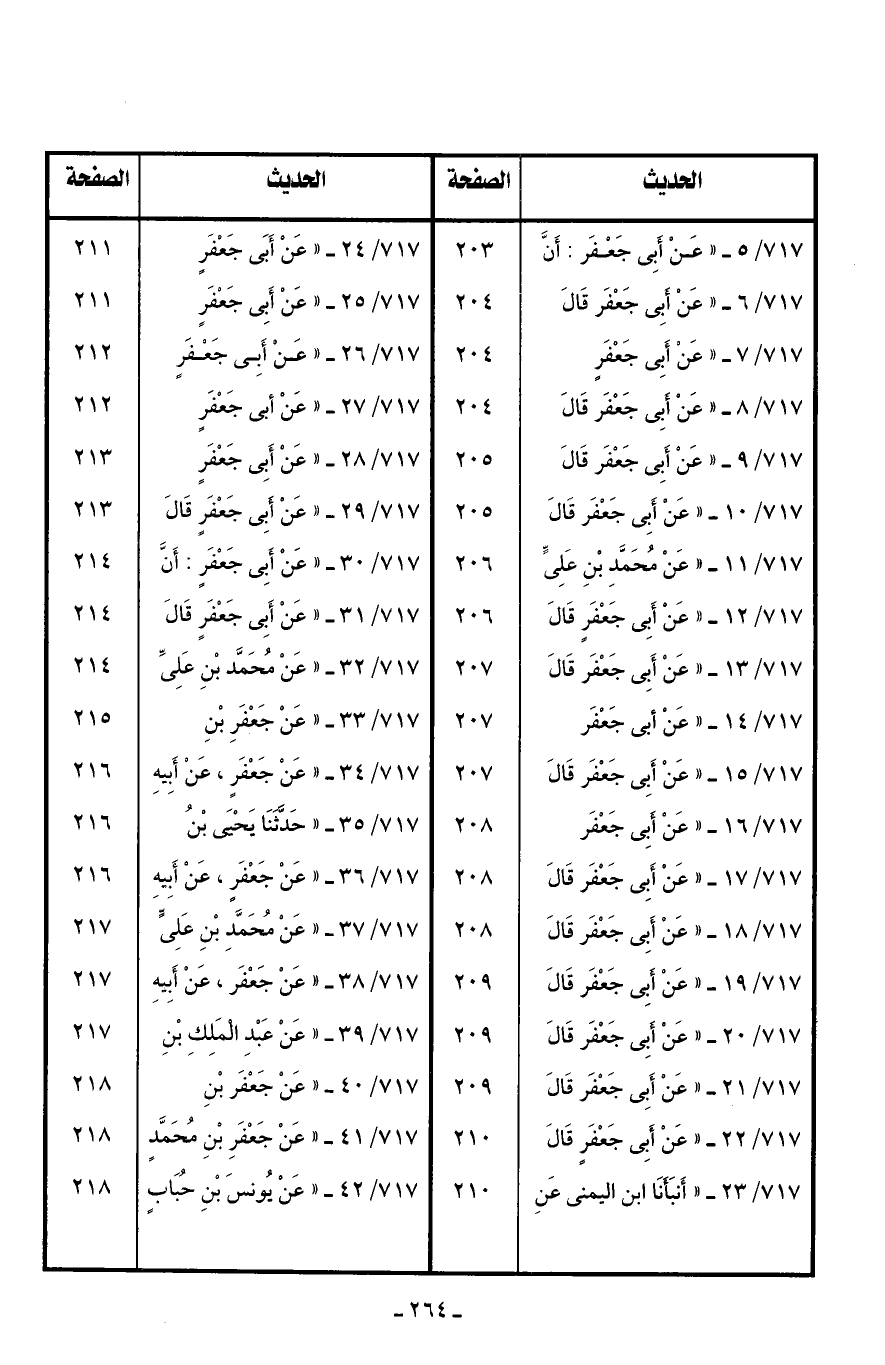 الحديث الصفحة
٧١٧/ ٥ ـ « عَـنْ أَبِى جَعْـفَر : أَنَّ ٢٠٣
٧١٧/ ٦ ـ « عَنْ أَبِى جَعْفَر قَالَ ٢٠٤
٧١٧/ ٧ ـ « عَنْ أَبِى جَعْفَرٍ ٢٠٤
٧١٧/ ٨ ـ « عَنْ أَبِى جَعْفَر قَالَ ٢٠٤
٧١٧/ ٩ ـ « عَنْ أَبِى جَعْفَر قَالَ ٢٠٥
٧١٧/ ١٠ ـ « عَنْ أَبِى جَعْفَر قَالَ ٢٠٥
٧١٧/ ١١ ـ « عَنْ مُحَمَّدِ بْنِ عَلِىٍّ ٢٠٦
٧١٧/ ١٢ ـ « عَنْ أَبِى جَعْفَرٍ قَالَ ٢٠٦
٧١٧/ ١٣ ـ « عَنْ أَبِى جَعْفَر قَالَ ٢٠٧
٧١٧/ ١٤ ـ « عَنْ أبى جَعْفَر ٢٠٧
٧١٧/ ١٥ ـ « عَنْ أَبِى جَعْفَر قَالَ ٢٠٧
٧١٧/ ١٦ ـ « عَنْ أَبِى جَعْفَر ٢٠٨
٧١٧/ ١٧ ـ « عَنْ أَبِى جَعْفَر قَالَ ٢٠٨
٧١٧/ ١٨ ـ « عَنْ أَبِى جَعْفَر قَالَ ٢٠٨
٧١٧/ ١٩ ـ « عَنْ أَبِى جَعْفَر قَالَ ٢٠٩
٧١٧/ ٢٠ ـ « عَنْ أَبِى جَعْفَر قَالَ ٢٠٩
٧١٧/ ٢١ ـ « عَنْ أَبِى جَعْفَر قَالَ ٢٠٩
٧١٧/ ٢٢ ـ « عَنْ أَبِى جَعْفَرٍ قَالَ ٢١٠
٧١٧/ ٢٣ ـ « أَنبَأَنَا ابن اليمنى عَنِ ٢١٠
الحديث الصفحة
٧١٧/ ٢٤ ـ « عَنْ أَبَى جَعْفَرٍ ٢١١
٧١٧/ ٢٥ ـ « عَنْ أَبِى جَعْفَرٍ ٢١١
٧١٧/ ٢٦ ـ « عَـنْ أَبِـى جَعْـفَرٍ ٢١٢
٧١٧/ ٢٧ ـ « عَنْ أبى جَعْفَرٍ ٢١٢
٧١٧/ ٢٨ ـ « عَنْ أَبِى جَعْفَرٍ ٢١٣
٧١٧/ ٢٩ ـ « عَنْ أَبِى جَعْفَرٍ قَالَ ٢١٣
٧١٧/ ٣٠ ـ « عَنْ أَبِى جَعْفَرٍ : أَنَّ ٢١٤
٧١٧/ ٣١ ـ « عَنْ أَبِى جَعْفَرٍ قَالَ ٢١٤
٧١٧/ ٣٢ ـ « عَنْ مُحَمَّد بْنِ عَلِىٍّ ٢١٤
٧١٧/ ٣٣ ـ « عَنْ جَعْفَرِ بْنِ ٢١٥
٧١٧/ ٣٤ ـ « عَنْ جَعْفَرٍ ، عَنْ أَبِيهِ ٢١٦
٧١٧/ ٣٥ ـ « حَدَّثَنَا يَحْيَى بْنُ ٢١٦
٧١٧/ ٣٦ ـ « عَنْ جَعْفَرٍ ، عَنْ أَبِيهِ ٢١٦
٧١٧/ ٣٧ ـ « عَنْ مُحَمَّدِ بْنِ عَلِىٍّ ٢١٧
٧١٧/ ٣٨ ـ « عَنْ جَعْفَر ، عَنْ أَبِيهِ ٢١٧
٧١٧/ ٣٩ ـ « عَنْ عَبْدِ الْمَلِكِ بْنِ ٢١٧
٧١٧/ ٤٠ ـ « عَنْ جَعْفَر بْنِ ٢١٨
٧١٧/ ٤١ ـ « عَنْ جَعْفَرِ بْنِ مُحَمَّدٍ ٢١٨
٧١٧/ ٤٢ ـ « عَنْ يُونسَ بْنِ خُبَابٍ ٢١٨
ـ ٢٦٤ ـ